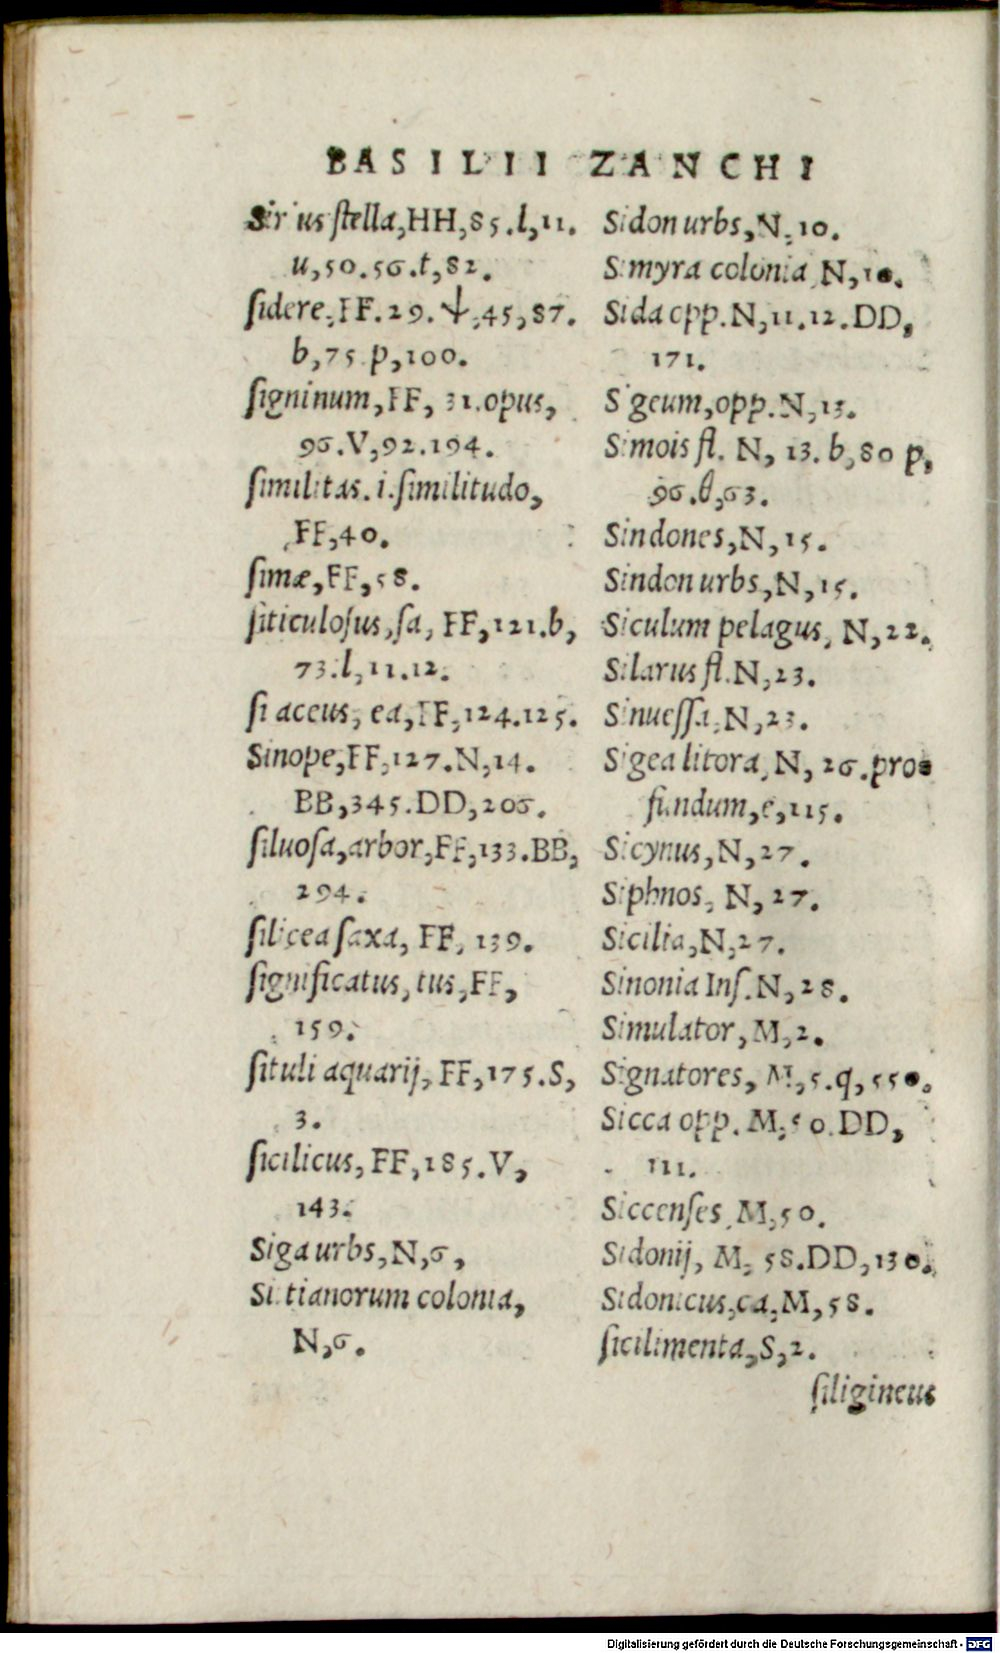 BASILII ZANCHI
Sirius stella, HH, 85. l, 11.
u, 50. 56. t, 82.
sidere, FF. 29. ψ, 45, 87.
b, 75 p, 100.
signinum, FF, 31. opus,
96. V, 92. 194.
similitas. i. similitudo,
FF, 40.
simæ, FF, 58.
siticulosus, sa, FF, 121. b,
73. l, 11. 12.
si aceus, ea, FF, 124. 125.
Sinope, FF, 127. N, 14.
BB, 345. DD, 206.
siluosa, arbor, FF, 133. BB,
294.
silicea saxa, FF, 139.
significatus, tus, FF,
159.
situli aquarij, FF, 175. S,
3.
sicilicus, FF, 185. V,
143.
Siga urbs, N, 6,
Sittianorum colonia,
N, 6.
Sidon urbs, N, 10.
Simyra colonia N, 10.
Sida opp. N, 11. 12. DD,
171.
Sigeum, opp. N, 13.
Simois fl. N, 13. b, 80 p,
96. θ, 63.
Sindones, N, 15.
Sindon urbs, N, 15.
Siculum pelagus, N, 22.
Silarus fl. N, 23.
Sinuessa, N, 23.
Sigea litora, N, 26. pro-
fundum, e, 115.
Sicynus, N, 27.
Siphnos, N, 27.
Sicilia, N, 27.
Sinonia Ins. N, 28.
Simulator, M, 2.
Signatores, M, 5. q, 550.
Sicca opp. M, 50. DD,
111.
Siccenses M, 50.
Sidonij, M, 58. DD, 130.
Sidonicus, ca, M, 58.
sicilimenta, S, 2.
siligineus
Digitalisierung gefördert durch die Deutsche Forschungsgemeinschaft - DFG